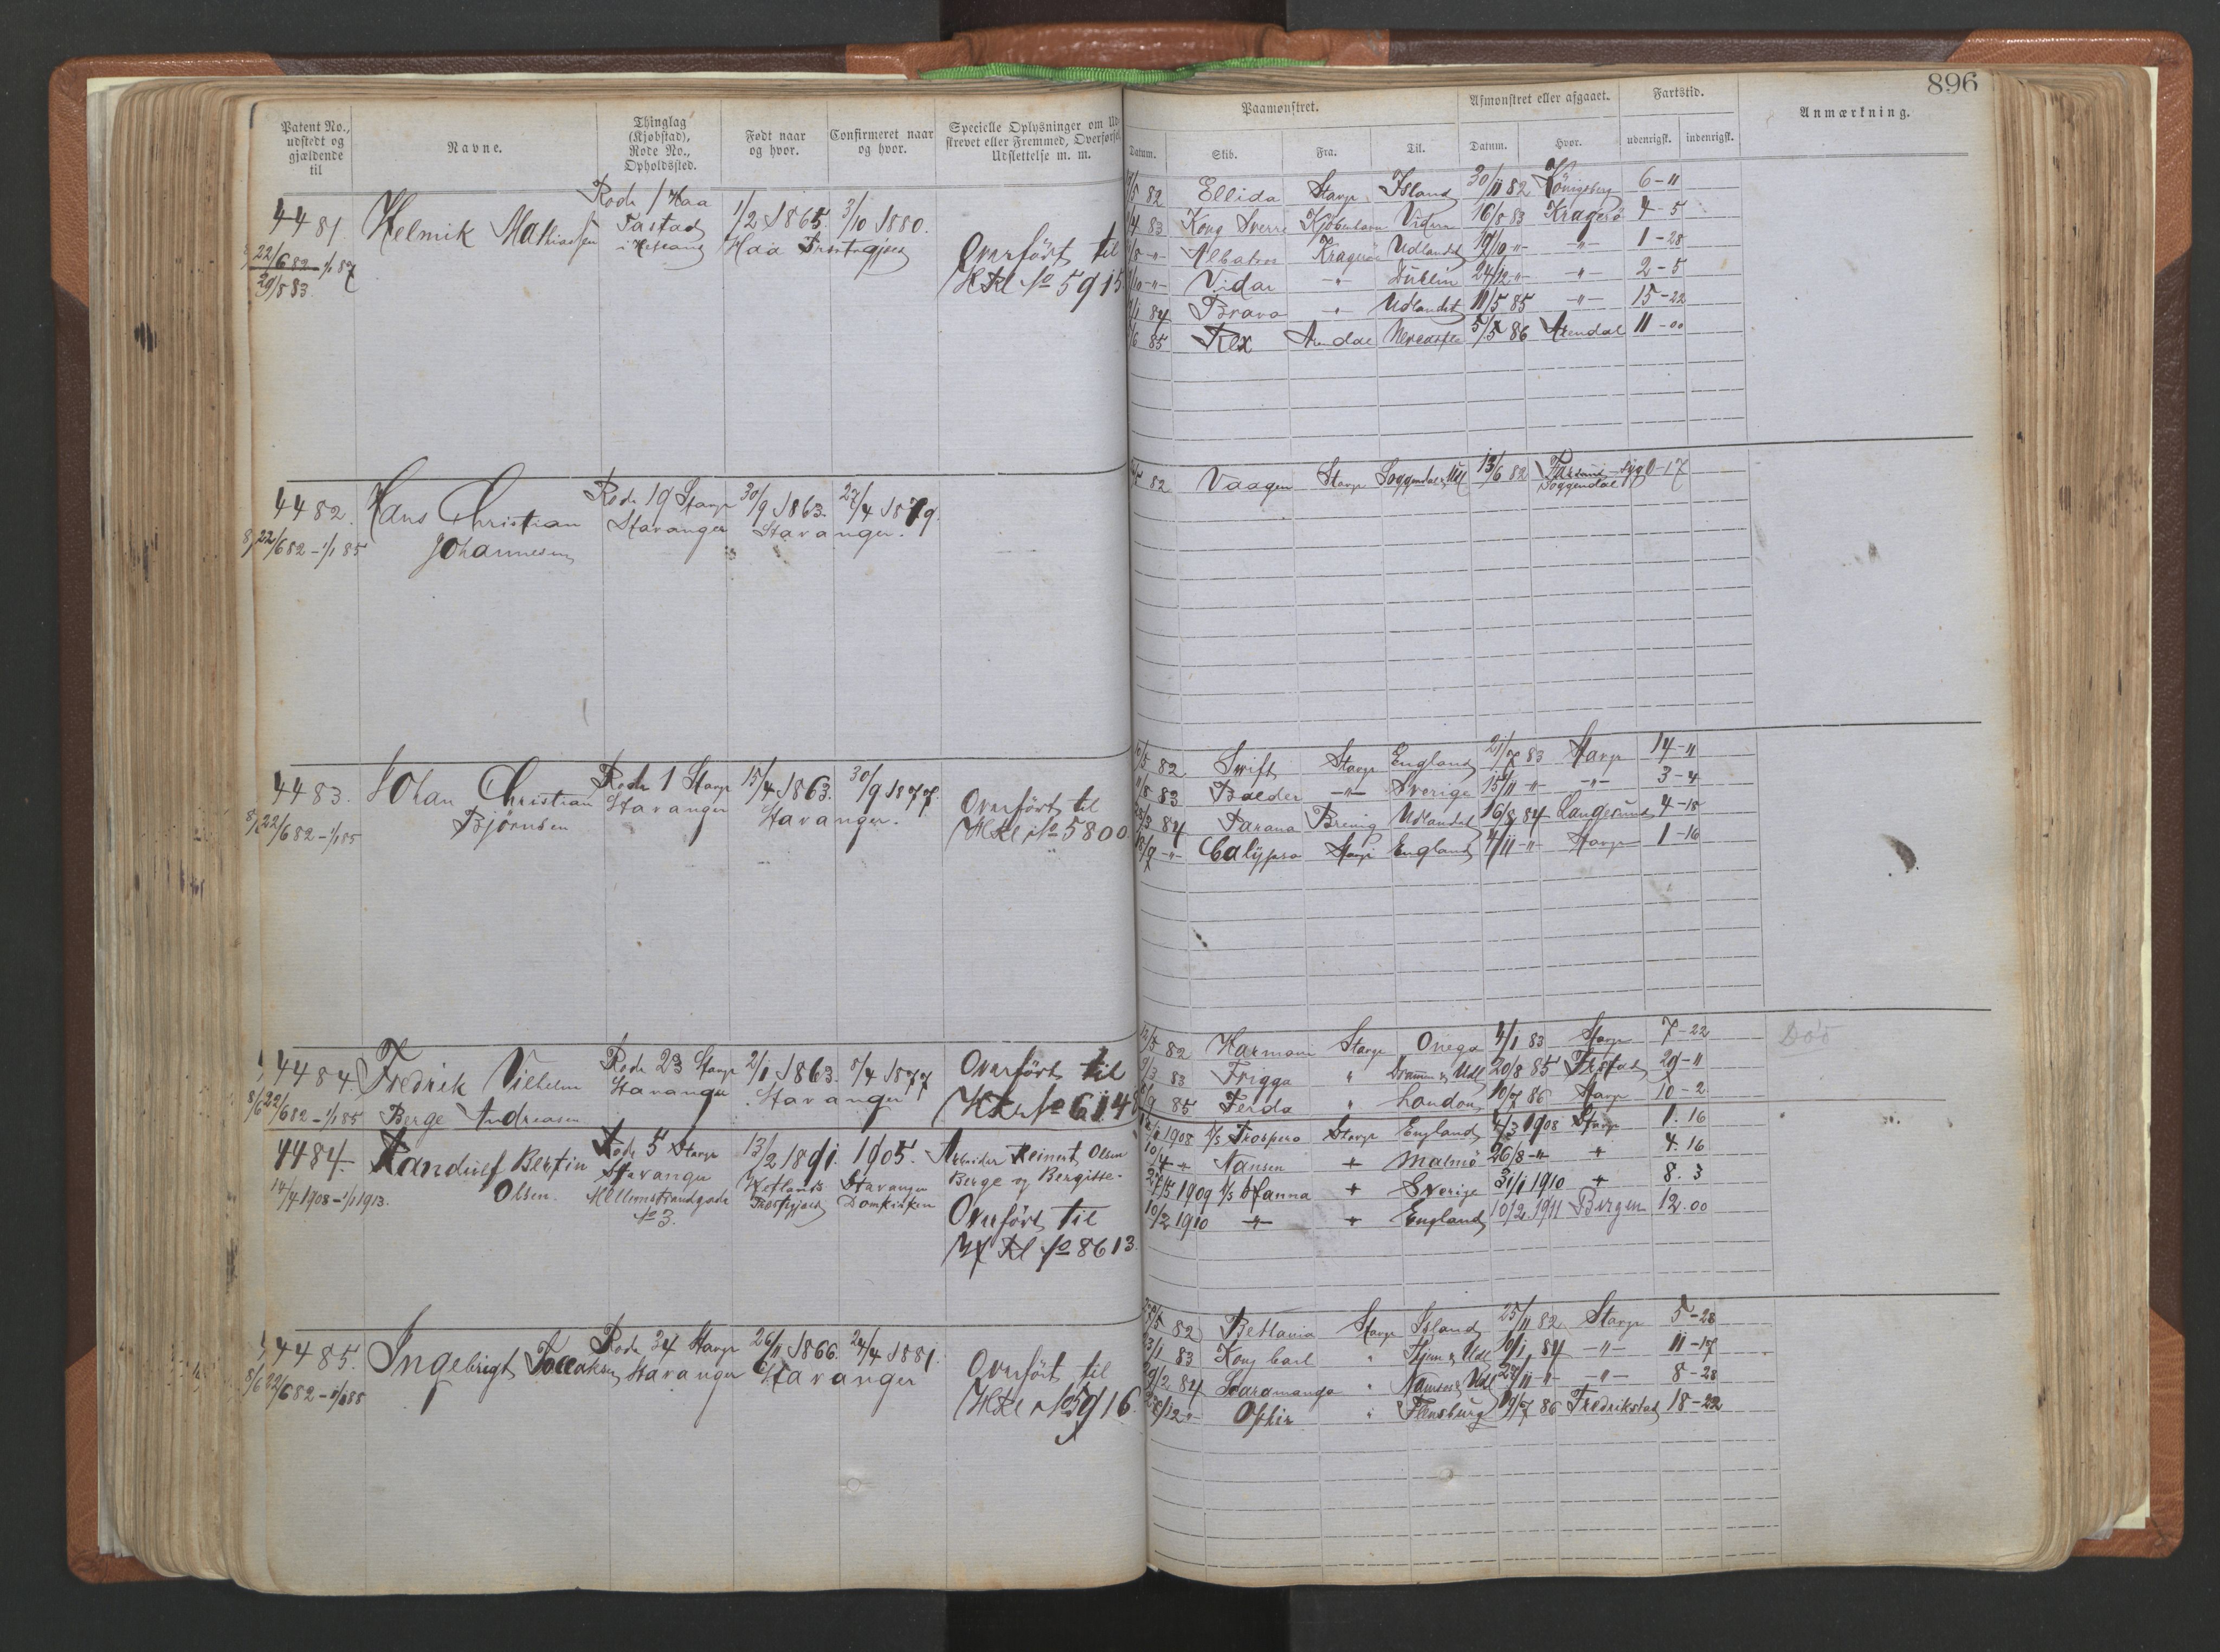 896
Patent No., udstedt og gjældende til
Navne.
Thinglag (Kjøbstad), Rode No., Opholdssted.
Født naar og hvor.
Confirmeret naar og hvor.
Specielle Oplysninger om Ud-
strevet eller Fremmed, Overførsel,
Udslettelse m. m.
Paamønstret.
Afmønstret eller afgaaet.
Fartstid.
Anmærkning.
Datum. Skib. Fra: Til. Datum. Hvor. udenrigsk. indenrigsk.
4481. Helmik Mathiassen Rode 1 Haa 1/2 1865. 3/10 1880.
22/6 82 - 1/1 87
29/8 83
Haa Præstegjæld
Overført til
HRl No 5915
82 Ellida Stavgr Island 30/11 82 Königsberg 6-11
83 Kong Sverre Kjøbenhavn 16/8 83 Kragerø 4-5
Albatros Kragerø Udlandet 19/10 -"- -"- 1-28
Vidar -"- Dublin 24/12 -"- -"- 2-5
84 Bravo -"- Udlandet 11/5 85 -"- 15-22
85 Rex Arendal 5/5 86 Arendal 11-00
4482. Hans Christian Johannesen Rode 19 Stavgr 30/9 1863. 27/4 1879.
8/6 22/6 82 - 1/1 85
Stavanger Stavanger.
82 Vaagen Stavgr Soggendal & Udl 13/6 82 Soggendal syg 0-17
4483. Johan Christian Bjørnsen Rode 1 Stavgr 15/4 1863. 30/9 1877.
8/6 22/6 82 - 1/1 85
Stavanger Stavanger.
Overført til
HRl No 5800
82 Swift Stavgr England 21/7 83 Stavgr 14-11
83 Balder -"- Sverige 15/11 -"- -"- 3-4
84 Parana Brevig Udlandet 16/8 84 Langesund 4-18
Calypso Stavgr England 4/11 -"- Stavgr 1-16
4484. Fredrik Vilhelm Rode 23 Stavgr 2/1 1863. 8/4 1877
8/6 22/6 82 - 1/1 85 Berge Andreasen Stavanger Stavanger
Overført til
HRl No 614
82 Harmoni Stavgr Onega 4/1 83 Stavgr 7-22
83 Frigga " Dramm & Udl 20/8 85 Frstad 29-11
85 Ferda " London 10/7 86 Stavgr 10-2
Død
4484. Randulf Bertin Olsen. Rode 5 Stavgr 13/2 1891. 1905.
14/4 1908 - 1/1 1913.
Stavanger
No 3.
Hetlands Præstegjæld
Stavanger Domkirken
Arbeider Reinert Olsen
Berge og Bergitte.
Overført til
HRl No 8613.
1908 D/s Prospero Stavgr England 4/3 1908 Stavgr 1.16
Nansen " Malmø 26/8 -"- " 4.16
27/5 1909 D/s Hanna " Sverige 31/1 1910 " 8.3
10/2 1910 -"- " England 10/2 1911 Bergen 12.00
4485. Ingebrigt Tollaksen Rode 34 Stavgr 26/11 1866. 24/4 1881.
8/6 22/6 82 - 1/1 88
Stavanger Stavanger
Overført til
HRl No 5916
82 Bethania Stavgr Island 25/11 82 Stavgr 5-28
83 Kong Carl " 84 -"- 11-17
84 Scaramanga " Namsos & Udl 27/11 -"- -"- 8-28
Ophir " Flensburg 19/7 86 Fredrikstad 18-22